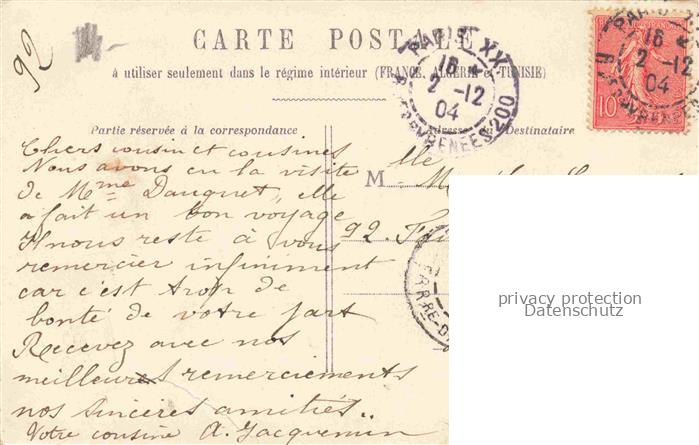 92
CARTE POSTALE
à utiliser seulement dans le régime intérieur (FRANCE, ALGERIE et TUNISIE)
PARIS XX
16
2 -12
04
R. DES PYRENEES 200
10
Partie réservée à la correspondance
Adresse du Destinataire
Chers cousin et cousines
Nous avons eu la visite
de Mme Dauguet, elle
a fait un bon voyage
Il nous reste à vous
remercier infiniment
car c'est trop de
bonté de votre part
Recevez avec nos
meilleurs remerciements
nos sincères amitiés..
Votre cousine A. Jacquemin
Mlle
M
92.
privacy protection
Datenschutz